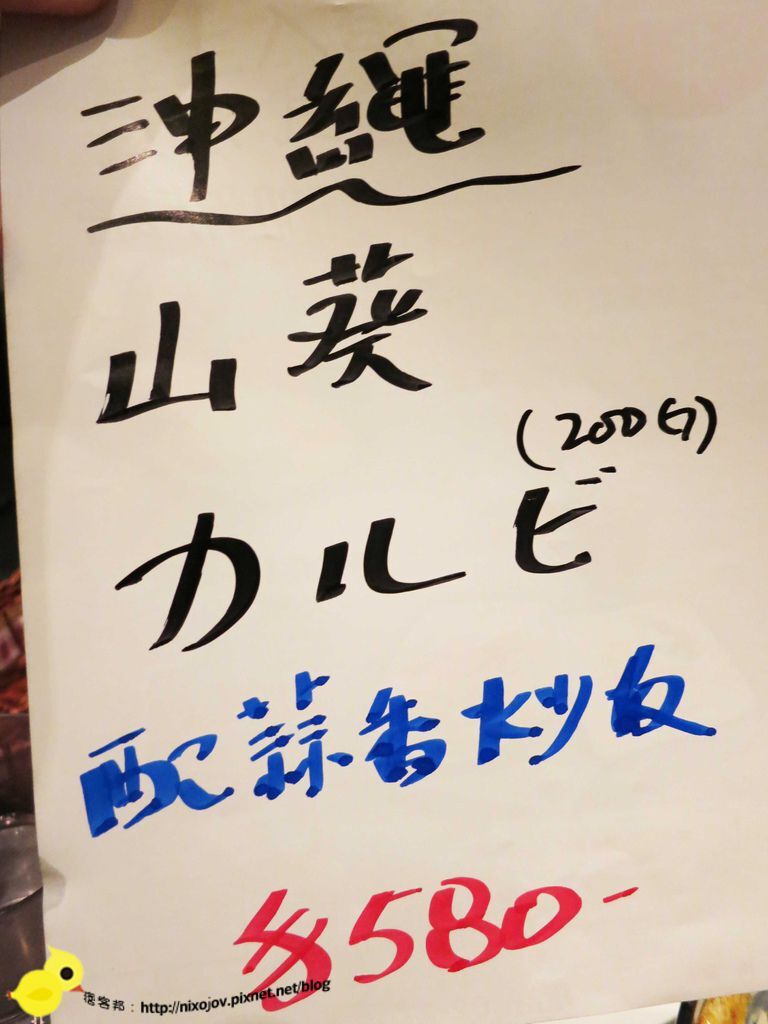 沖繩
山葵
(200G)
カルビ
配蒜香炒飯
$580-
痞客邦：http://nixojov.pixnet.net/blog